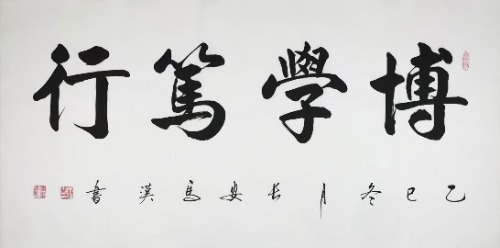 博學篤行
乙巳冬月長安馬漢書